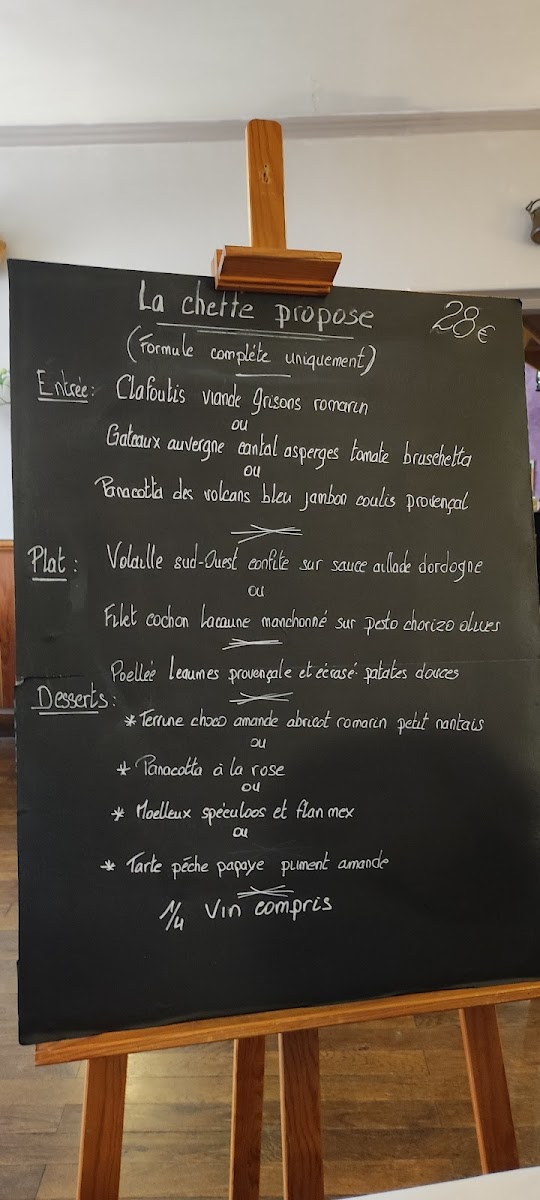 La chette propose 28€
(Formule complète uniquement)
Entrée: Clafoutis viande grisons romarin
ou
Gateaux auvergne cantal asperges tomate bruschetta
ou
Panacotta des volcans bleu jambon coulis provençal
Plat: Volaille sud-Ouest confite sur sauce aillade dordogne
ou
Filet cochon Lacaune manchonné sur pesto chorizo olives
Poellée legumes provençale et écrasé patates douces
Desserts:
* Terrine choco amande abricot romarin petit nantais
ou
* Panacotta à la rose
ou
* Moelleux spéculoos et flan mex
ou
* Tarte pêche papaye piment amande
1/4 Vin compris